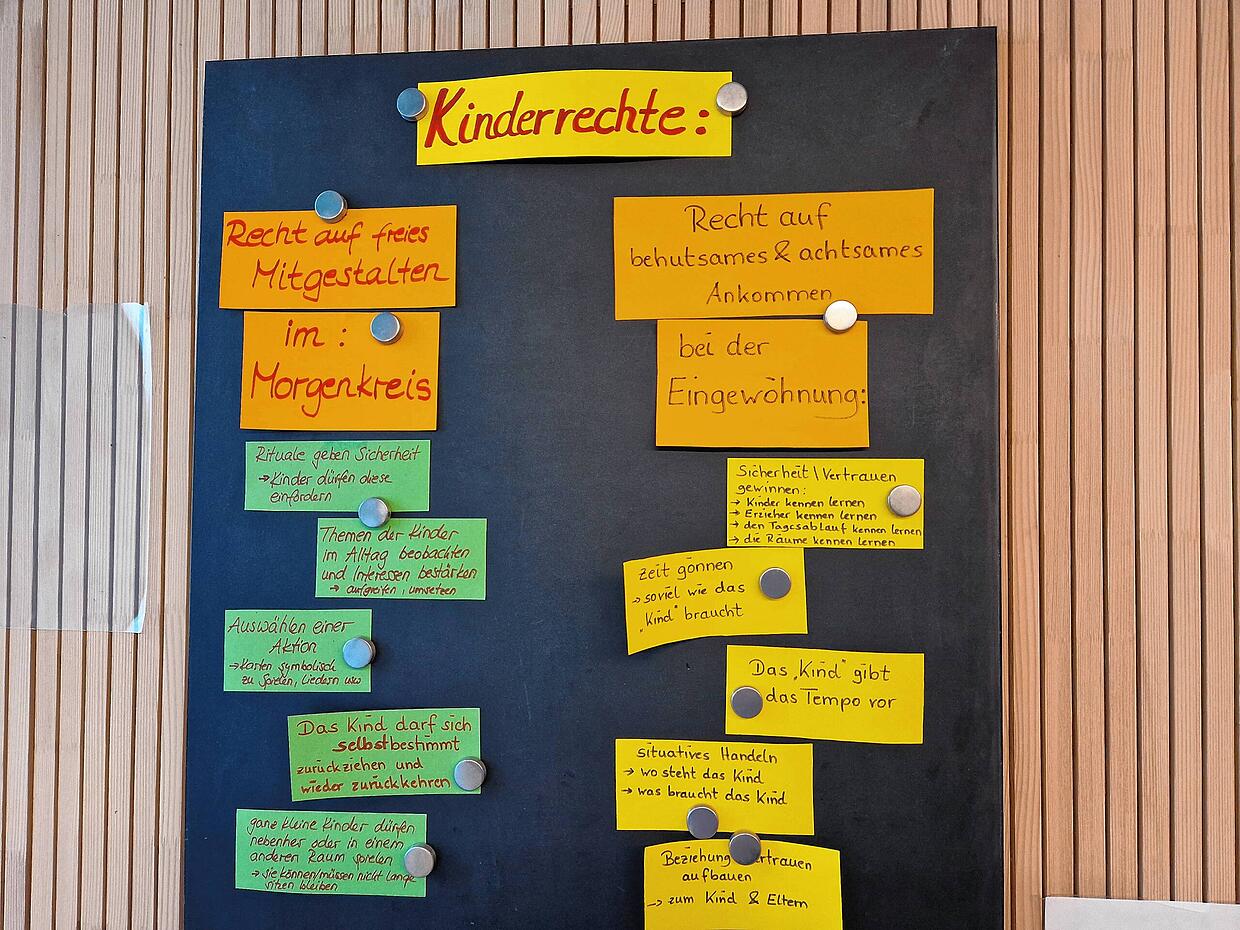 Kinderrechte:
Recht auf freies
Mitgestalten
im :
Morgenkreis
Rituale geben Sicherheit
→ Kinder dürfen diese
einfordern
Themen der Kinder
im Alltag beobachten
und Interessen bestärken
→ aufgreifen, umsetzen
Auswählen einer
Aktion
→ Karten symbolisch
zu Spielen, Liedern usw
Das Kind darf sich
selbstbestimmt
zurückziehen und
wieder zurückkehren
ganz kleine Kinder dürfen
nebenher oder in einem
anderen Raum spielen
→ sie können/müssen nicht lange
sitzen bleiben
Recht auf
behutsames & achtsames
Ankommen
bei der
Eingewöhnung:
Sicherheit \ Vertrauen
gewinnen:
→ Kinder kennen lernen
→ Erzieher kennen lernen
→ den Tagesablauf kennen lernen
→ die Räume kennen lernen
Zeit gönnen
→ soviel wie das
„Kind" braucht
Das „Kind" gibt
das Tempo vor
situatives Handeln
→ wo steht das Kind
→ was braucht das Kind
Beziehung ertrauen
aufbauen
→ zum Kind & Eltern